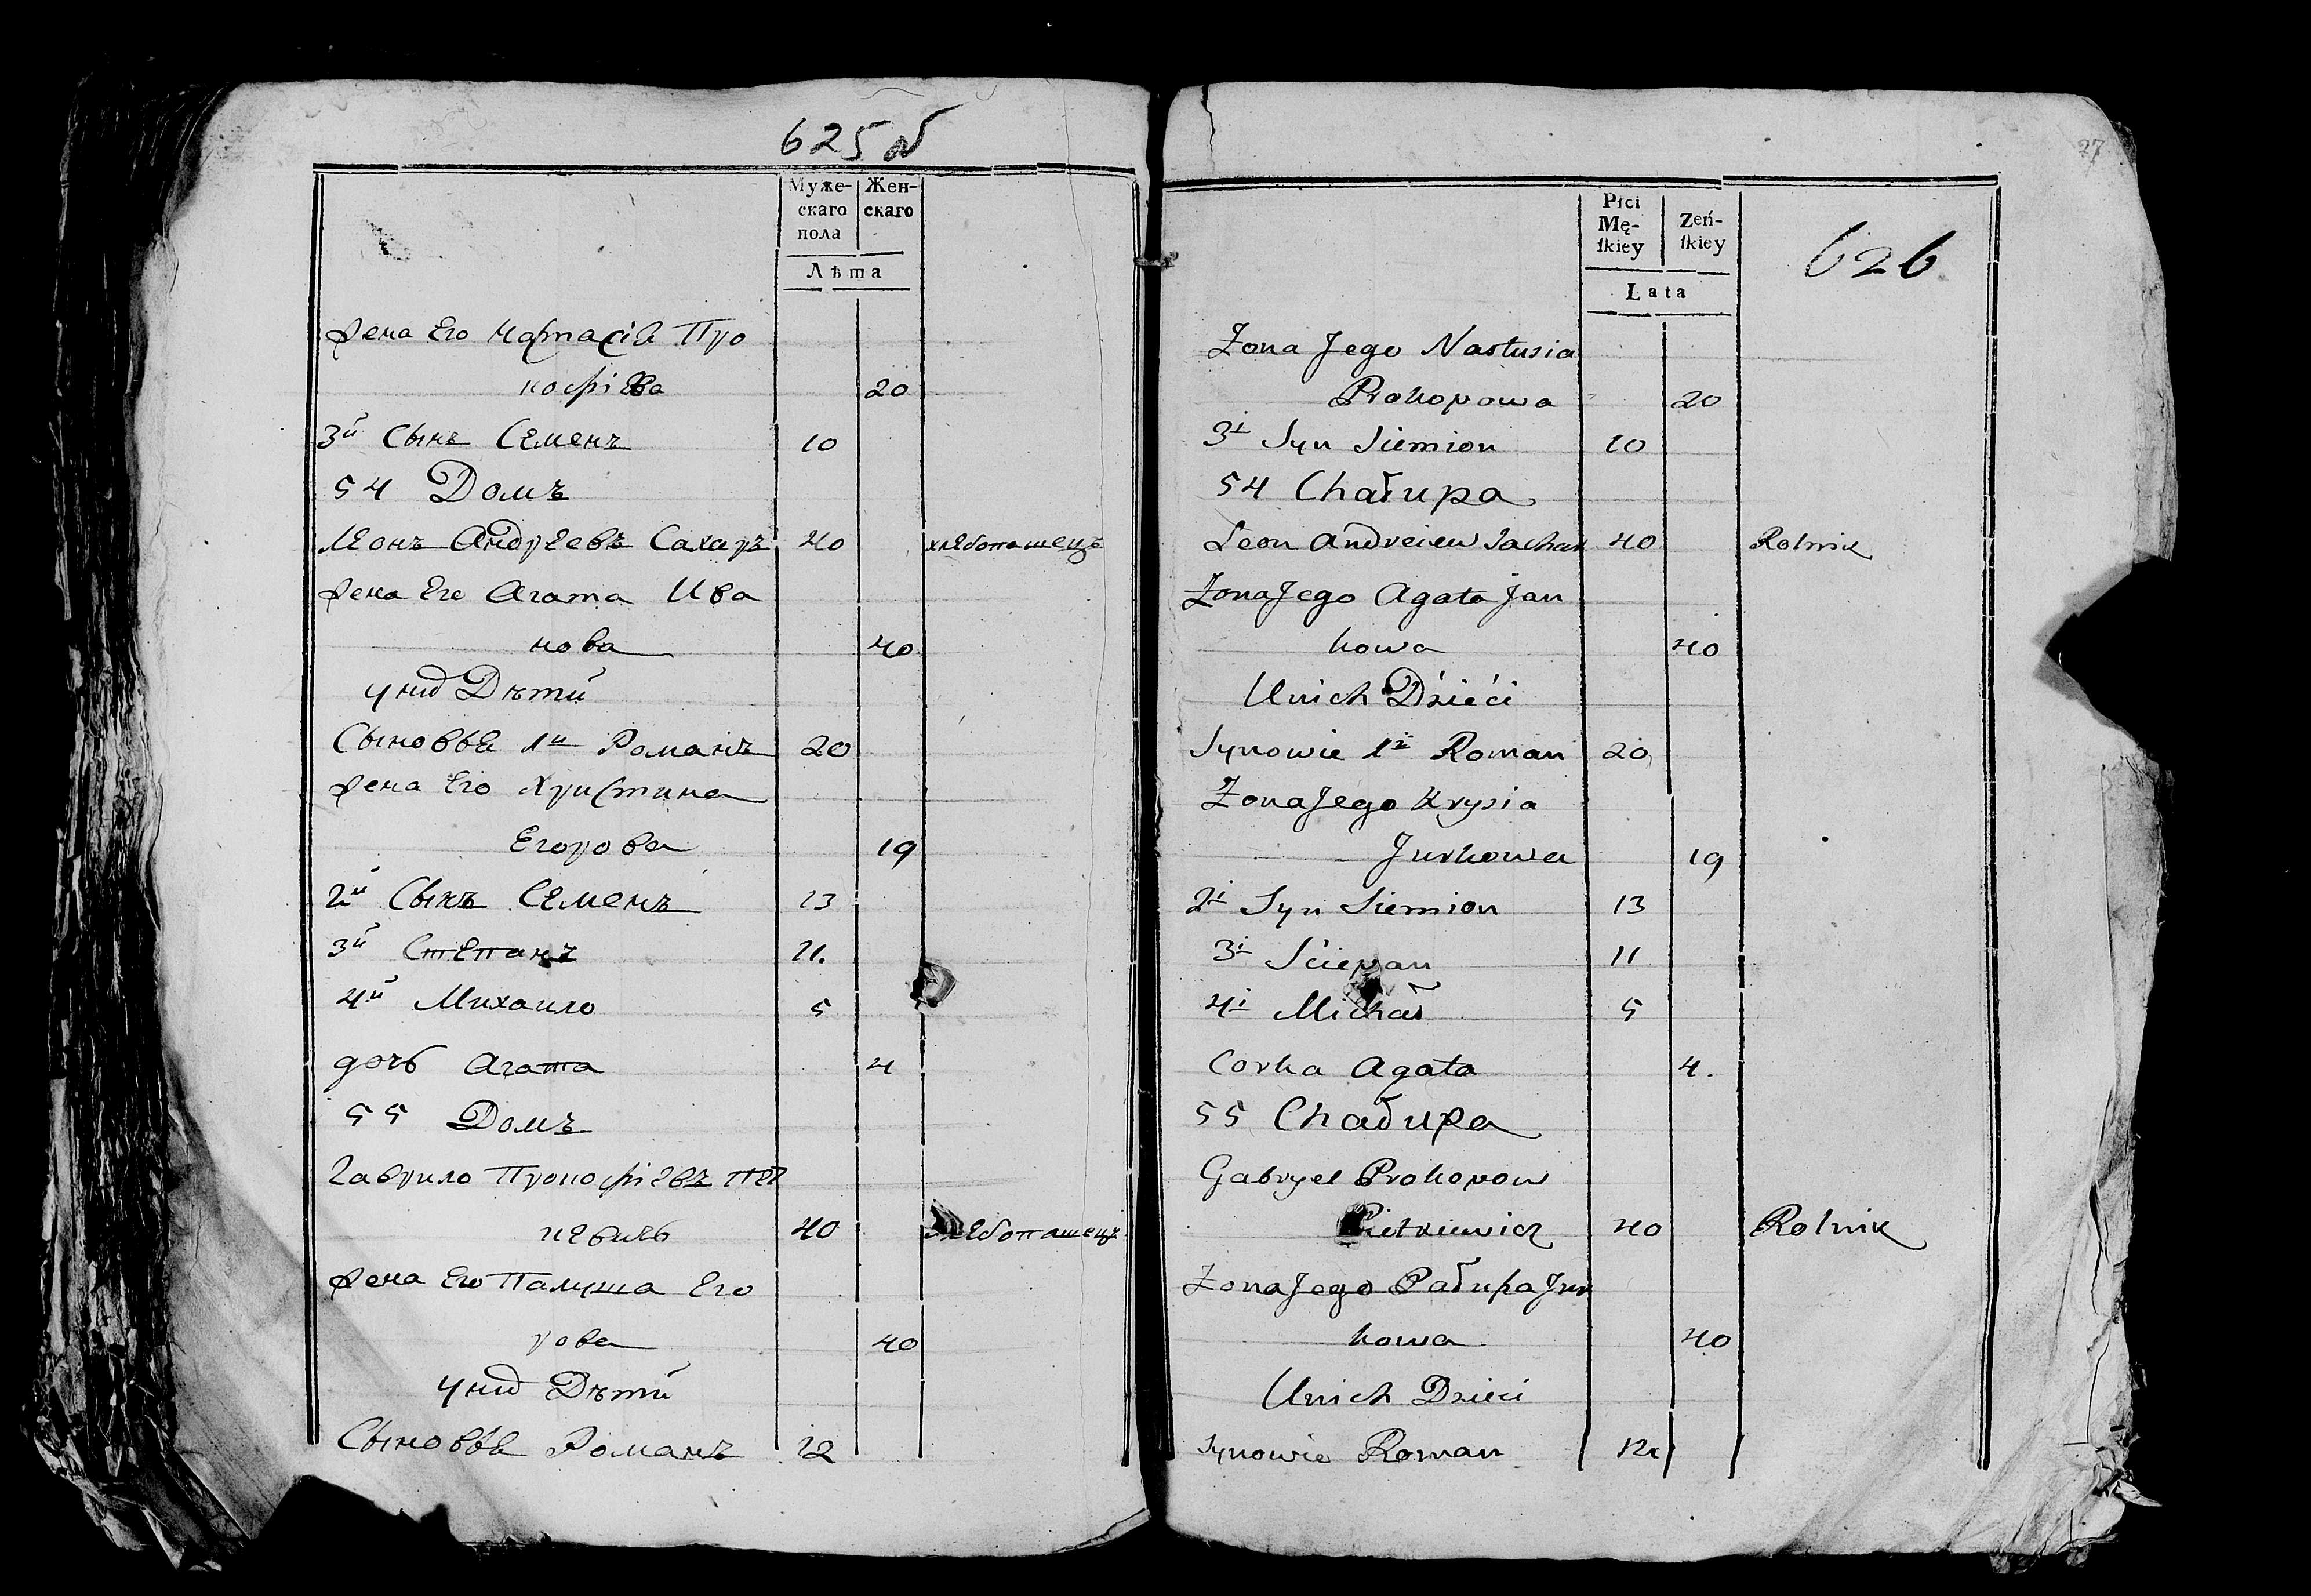 625 об
Муже-
скаго
пола
Жен-
скаго
Лѣта
жена Его Настасія Про
кофіева 20
3й Сынъ Семенъ 10
54 Домъ
Леонъ Андреевъ Сахаръ 40 хлебопашецъ
жена Его Агата Ива
нова 40
у них Дѣти
Сыновья 1й Романъ 20
жена Его Христина
Егорова 19
2й Сынъ Семенъ 13
3й Степанъ 11.
4й Михаило 5
дочь Агата 4
55 Домъ
Гаврило Прокофіевъ Пет
кевичь 40 хлебопашецъ
жена Его Палуша Его
рова 40
у них Дѣти
Сыновья Романъ 12
27
626
Płci
Mę-
ſkiey
Zeń-
ſkiey
Lata
Zona Jego Nastusia
Prokopowa 20
3i Syn Siemion 10
54 Chałupa
Leon Andreiew Sachar 40 Rolnik
Zona Jego Agata Jan
kowa 40
Unich Dzieci
Synowie 1i Roman 20
Zona Jego Krysia
Jurkowa 19
2i Syn Siemion 13
3i Sciepan 11
4i Michał 5
Corka Agata 4.
55 Chałupa
Gabryel Prokopow
Pietkiewicz 40 Rolnik
Zona Jego Pałuha Jur
kowa 40
Unich Dzieci
Synowie Roman 12